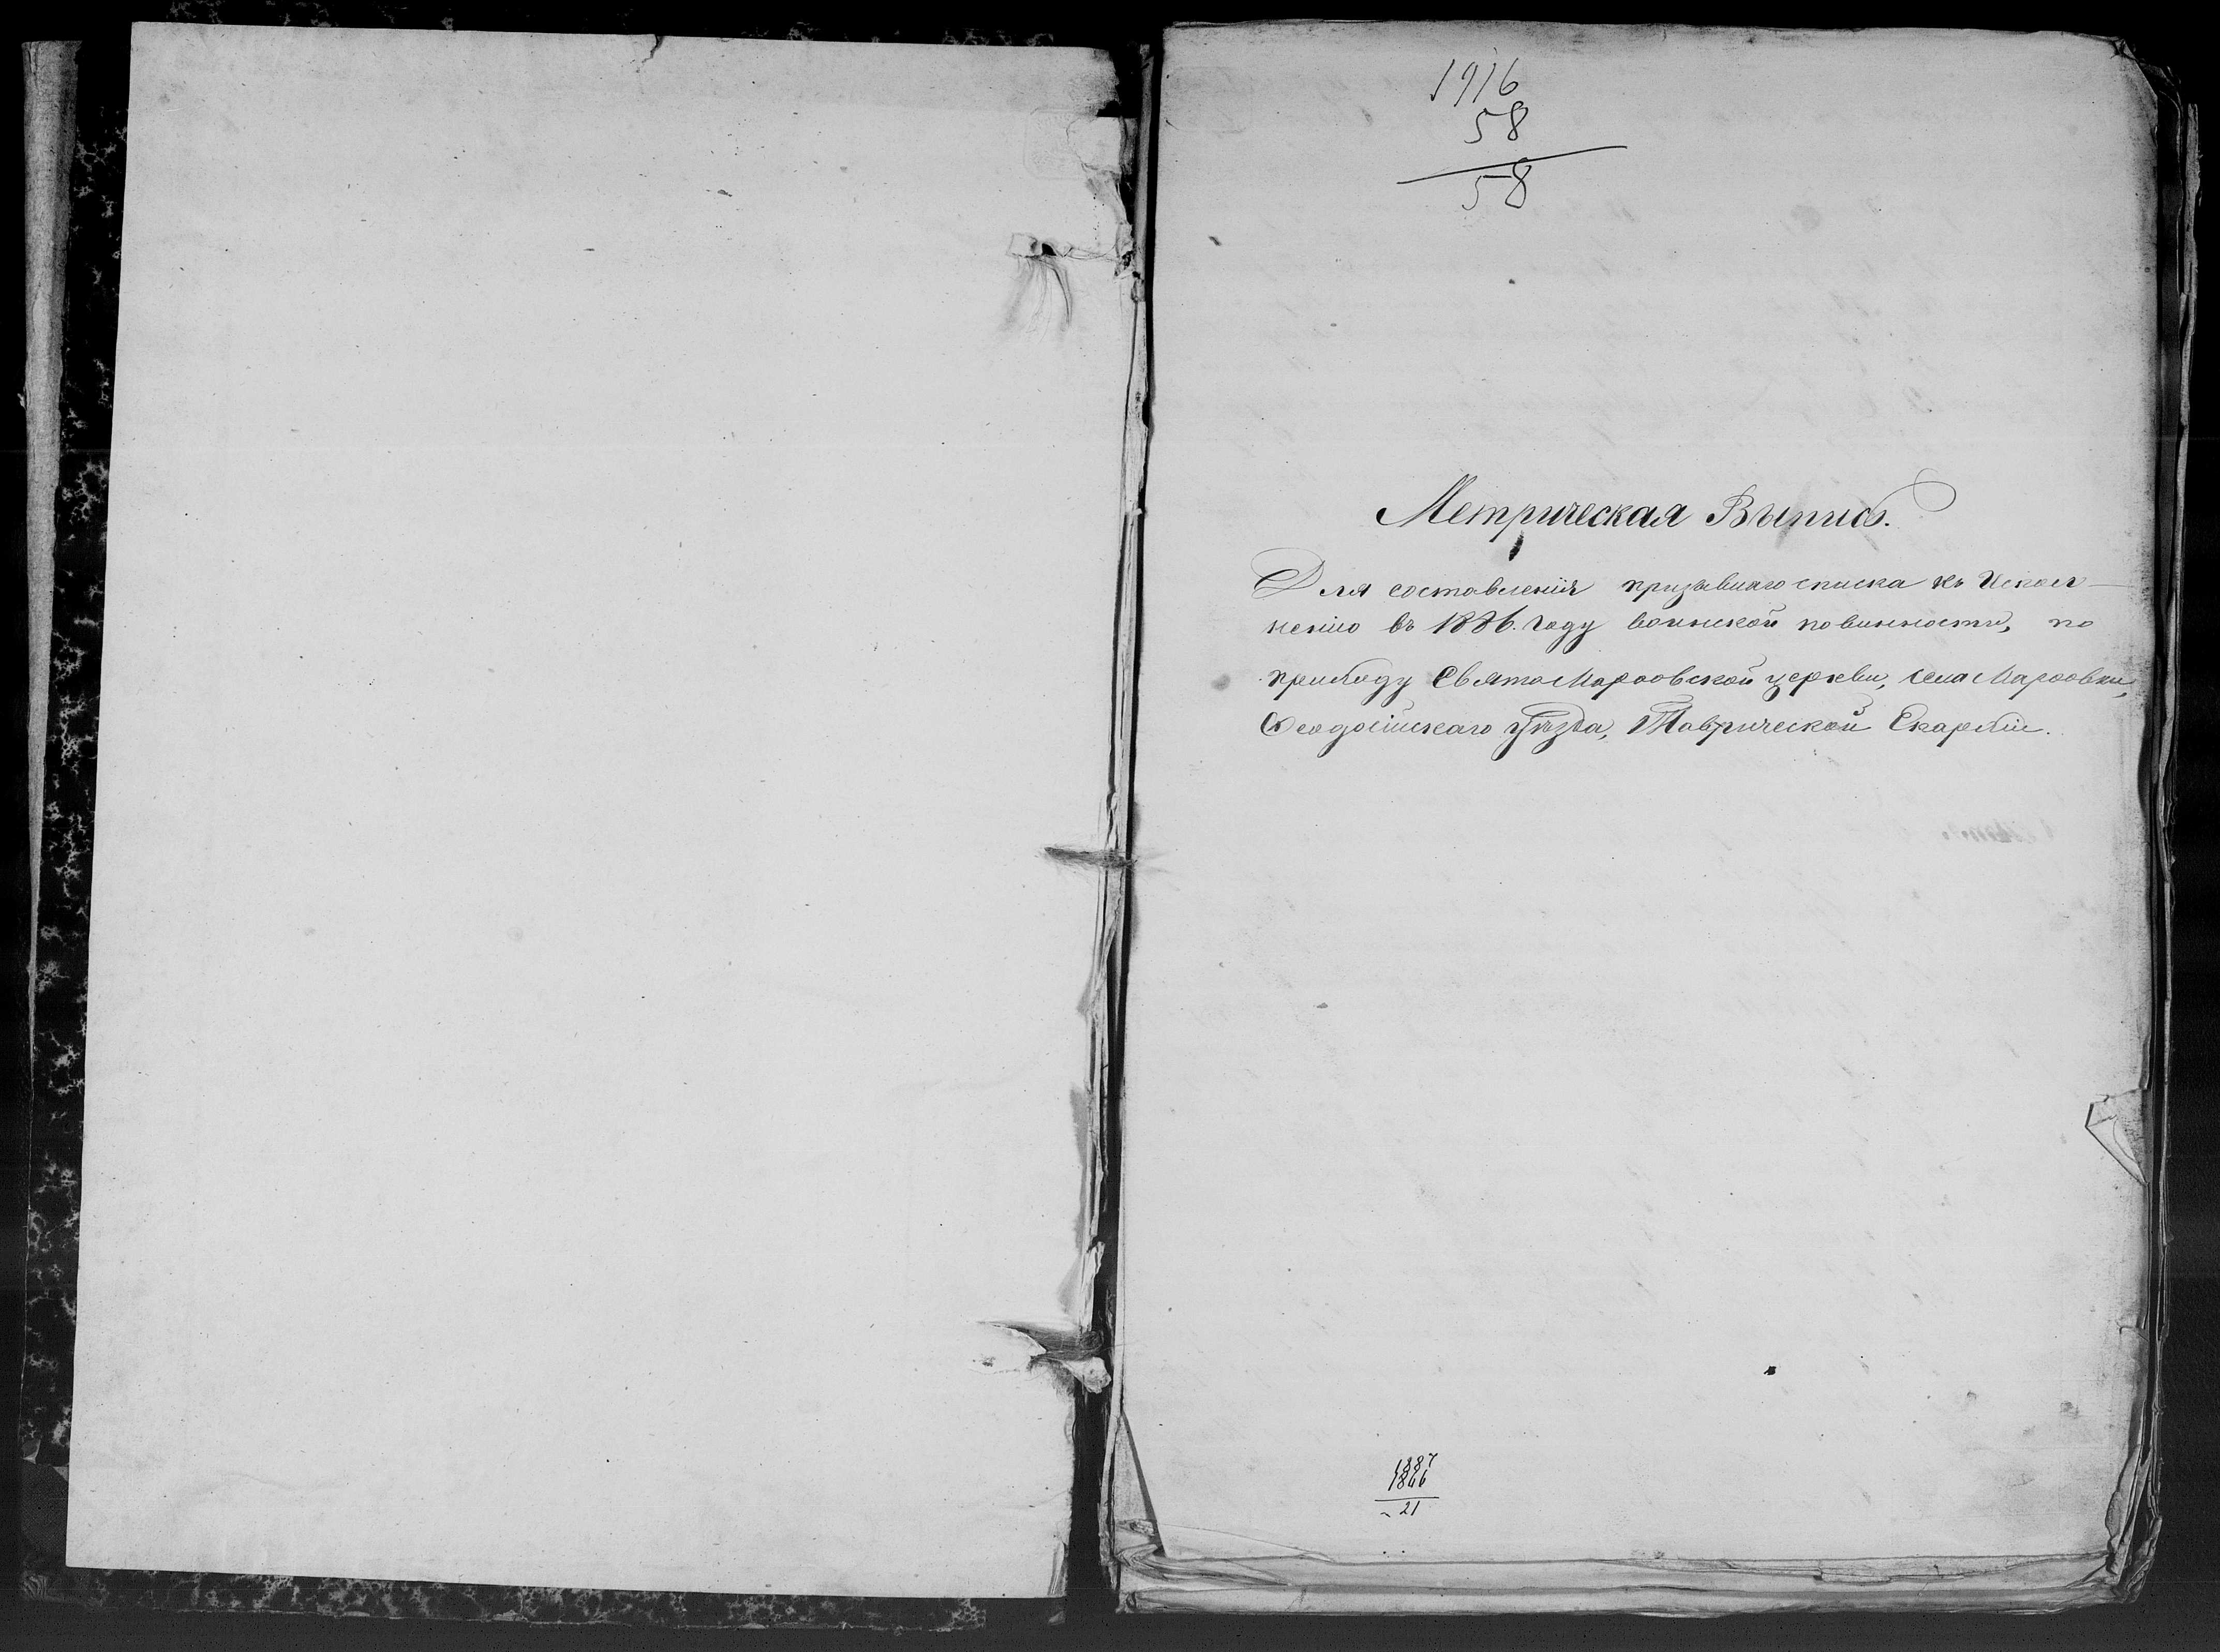 1916
58
58
Метрическая Выпись.
Для составленія призывнаго списка къ Испол-
ненію въ 1886. году воинской повинности, по
приходу СвятоМарѳовской церкви, села Марѳовки,
Ѳеодосійскаго уѣзда, Таврической Епархіи.
1887
1866
21